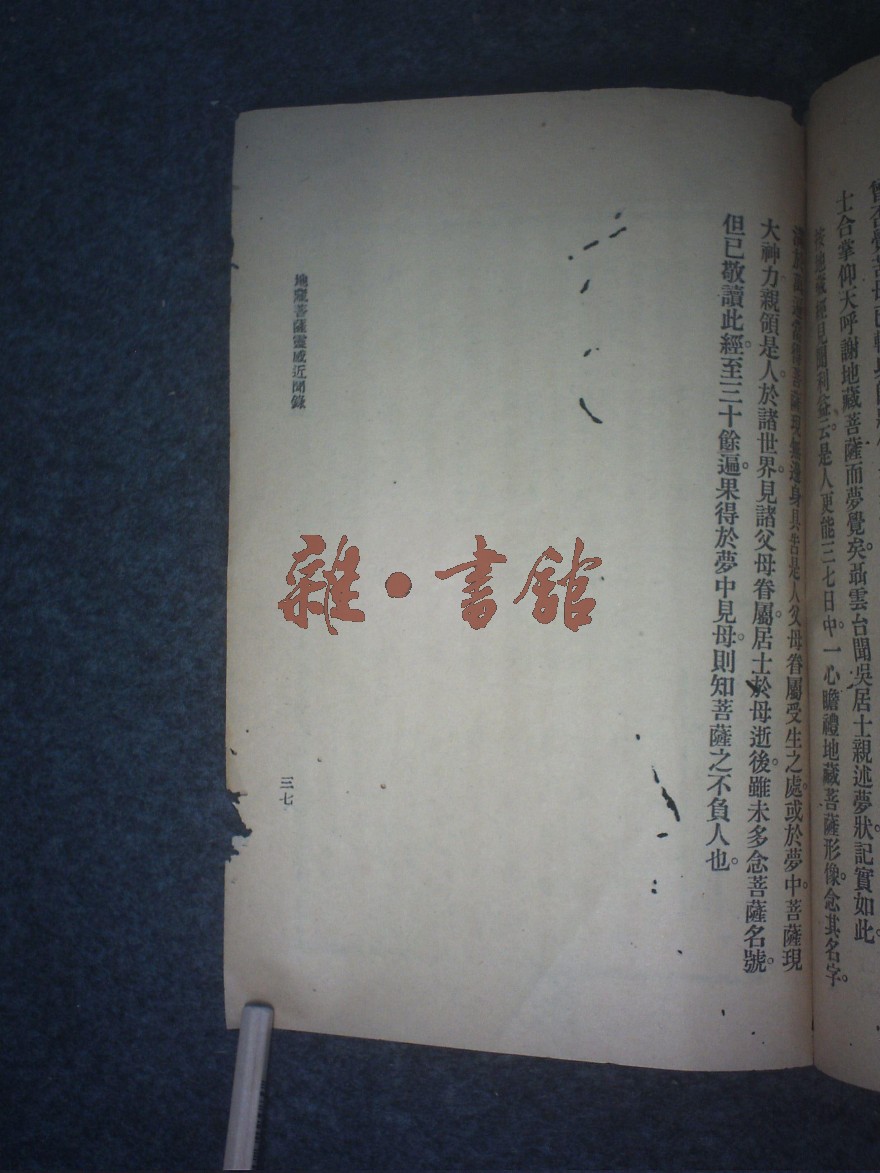 士合掌仰天呼謝地藏菩薩而夢覺矣。聶雲台聞吳居士親述夢狀。記實如此。
按地藏經見聞利益云。是人更能三七日中。一心瞻禮地藏菩薩形像。念其名字。
菩薩現無邊身具告是人父母眷屬受生之處。或於夢中。菩薩現
大神力。親領是人於諸世界。見諸父母眷屬。居士於母逝後。雖未多念菩薩名號。
但已敬讀此經。至三十餘遍。果得於夢中見母。則知菩薩之不負人也。
地藏菩薩靈感近聞錄
三七
雜·書館